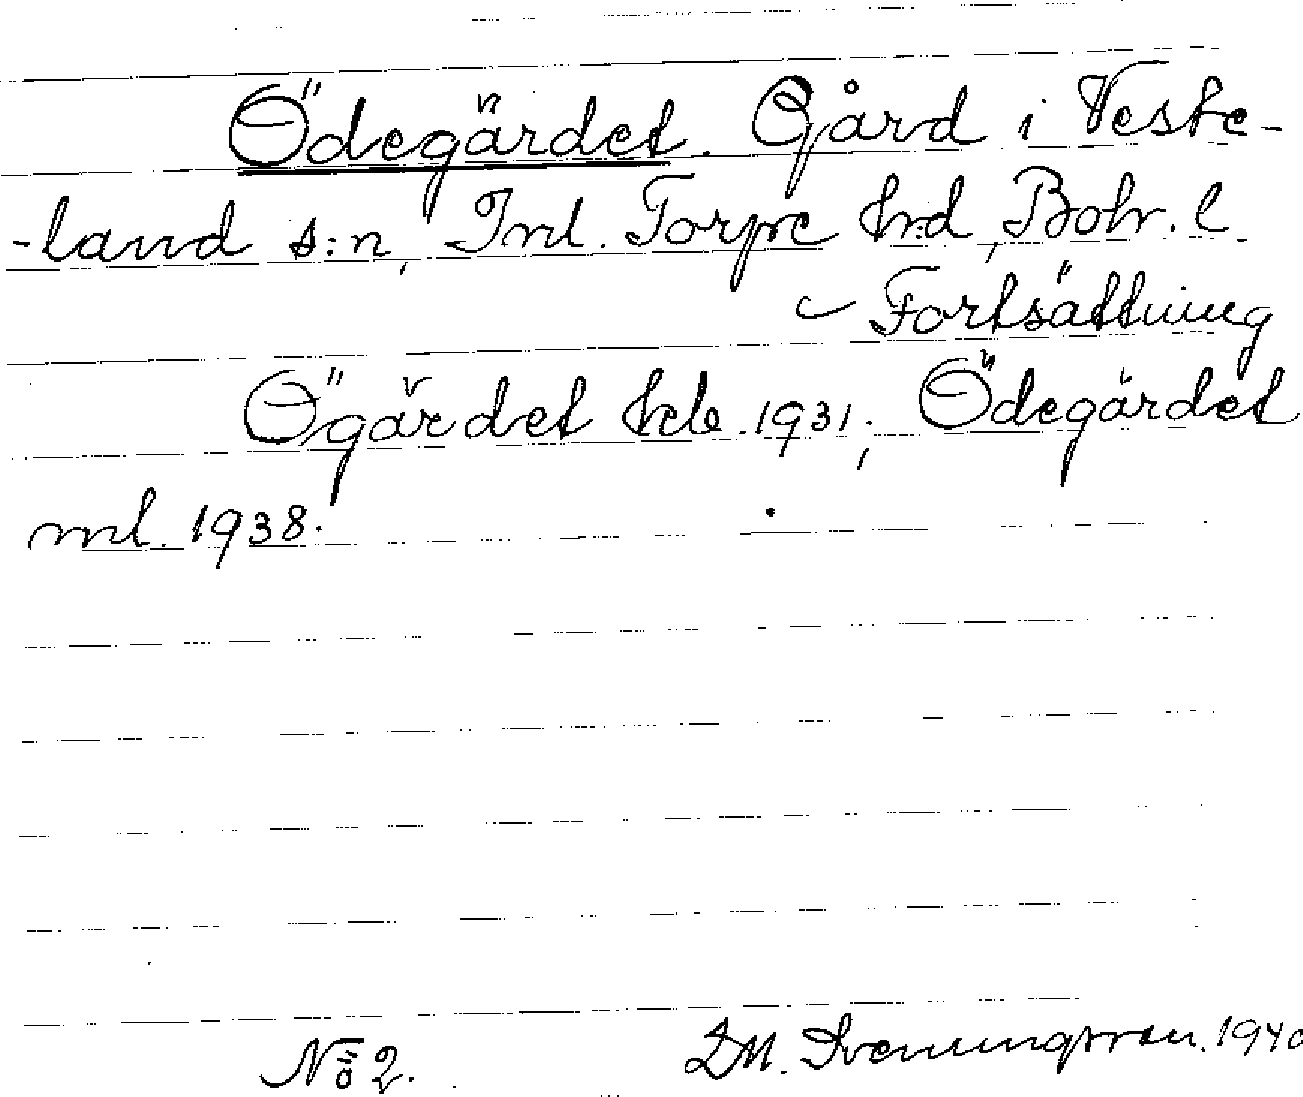 Ödegärdet. Gård i Veste-
-land s:n, Inl. Torpe h:d, Boh. l.
Fortsättning
Ögärdet kelt. 1931; Ödegärdet
ml. 1938.
No 2. D.M. Svenungsson. 1940